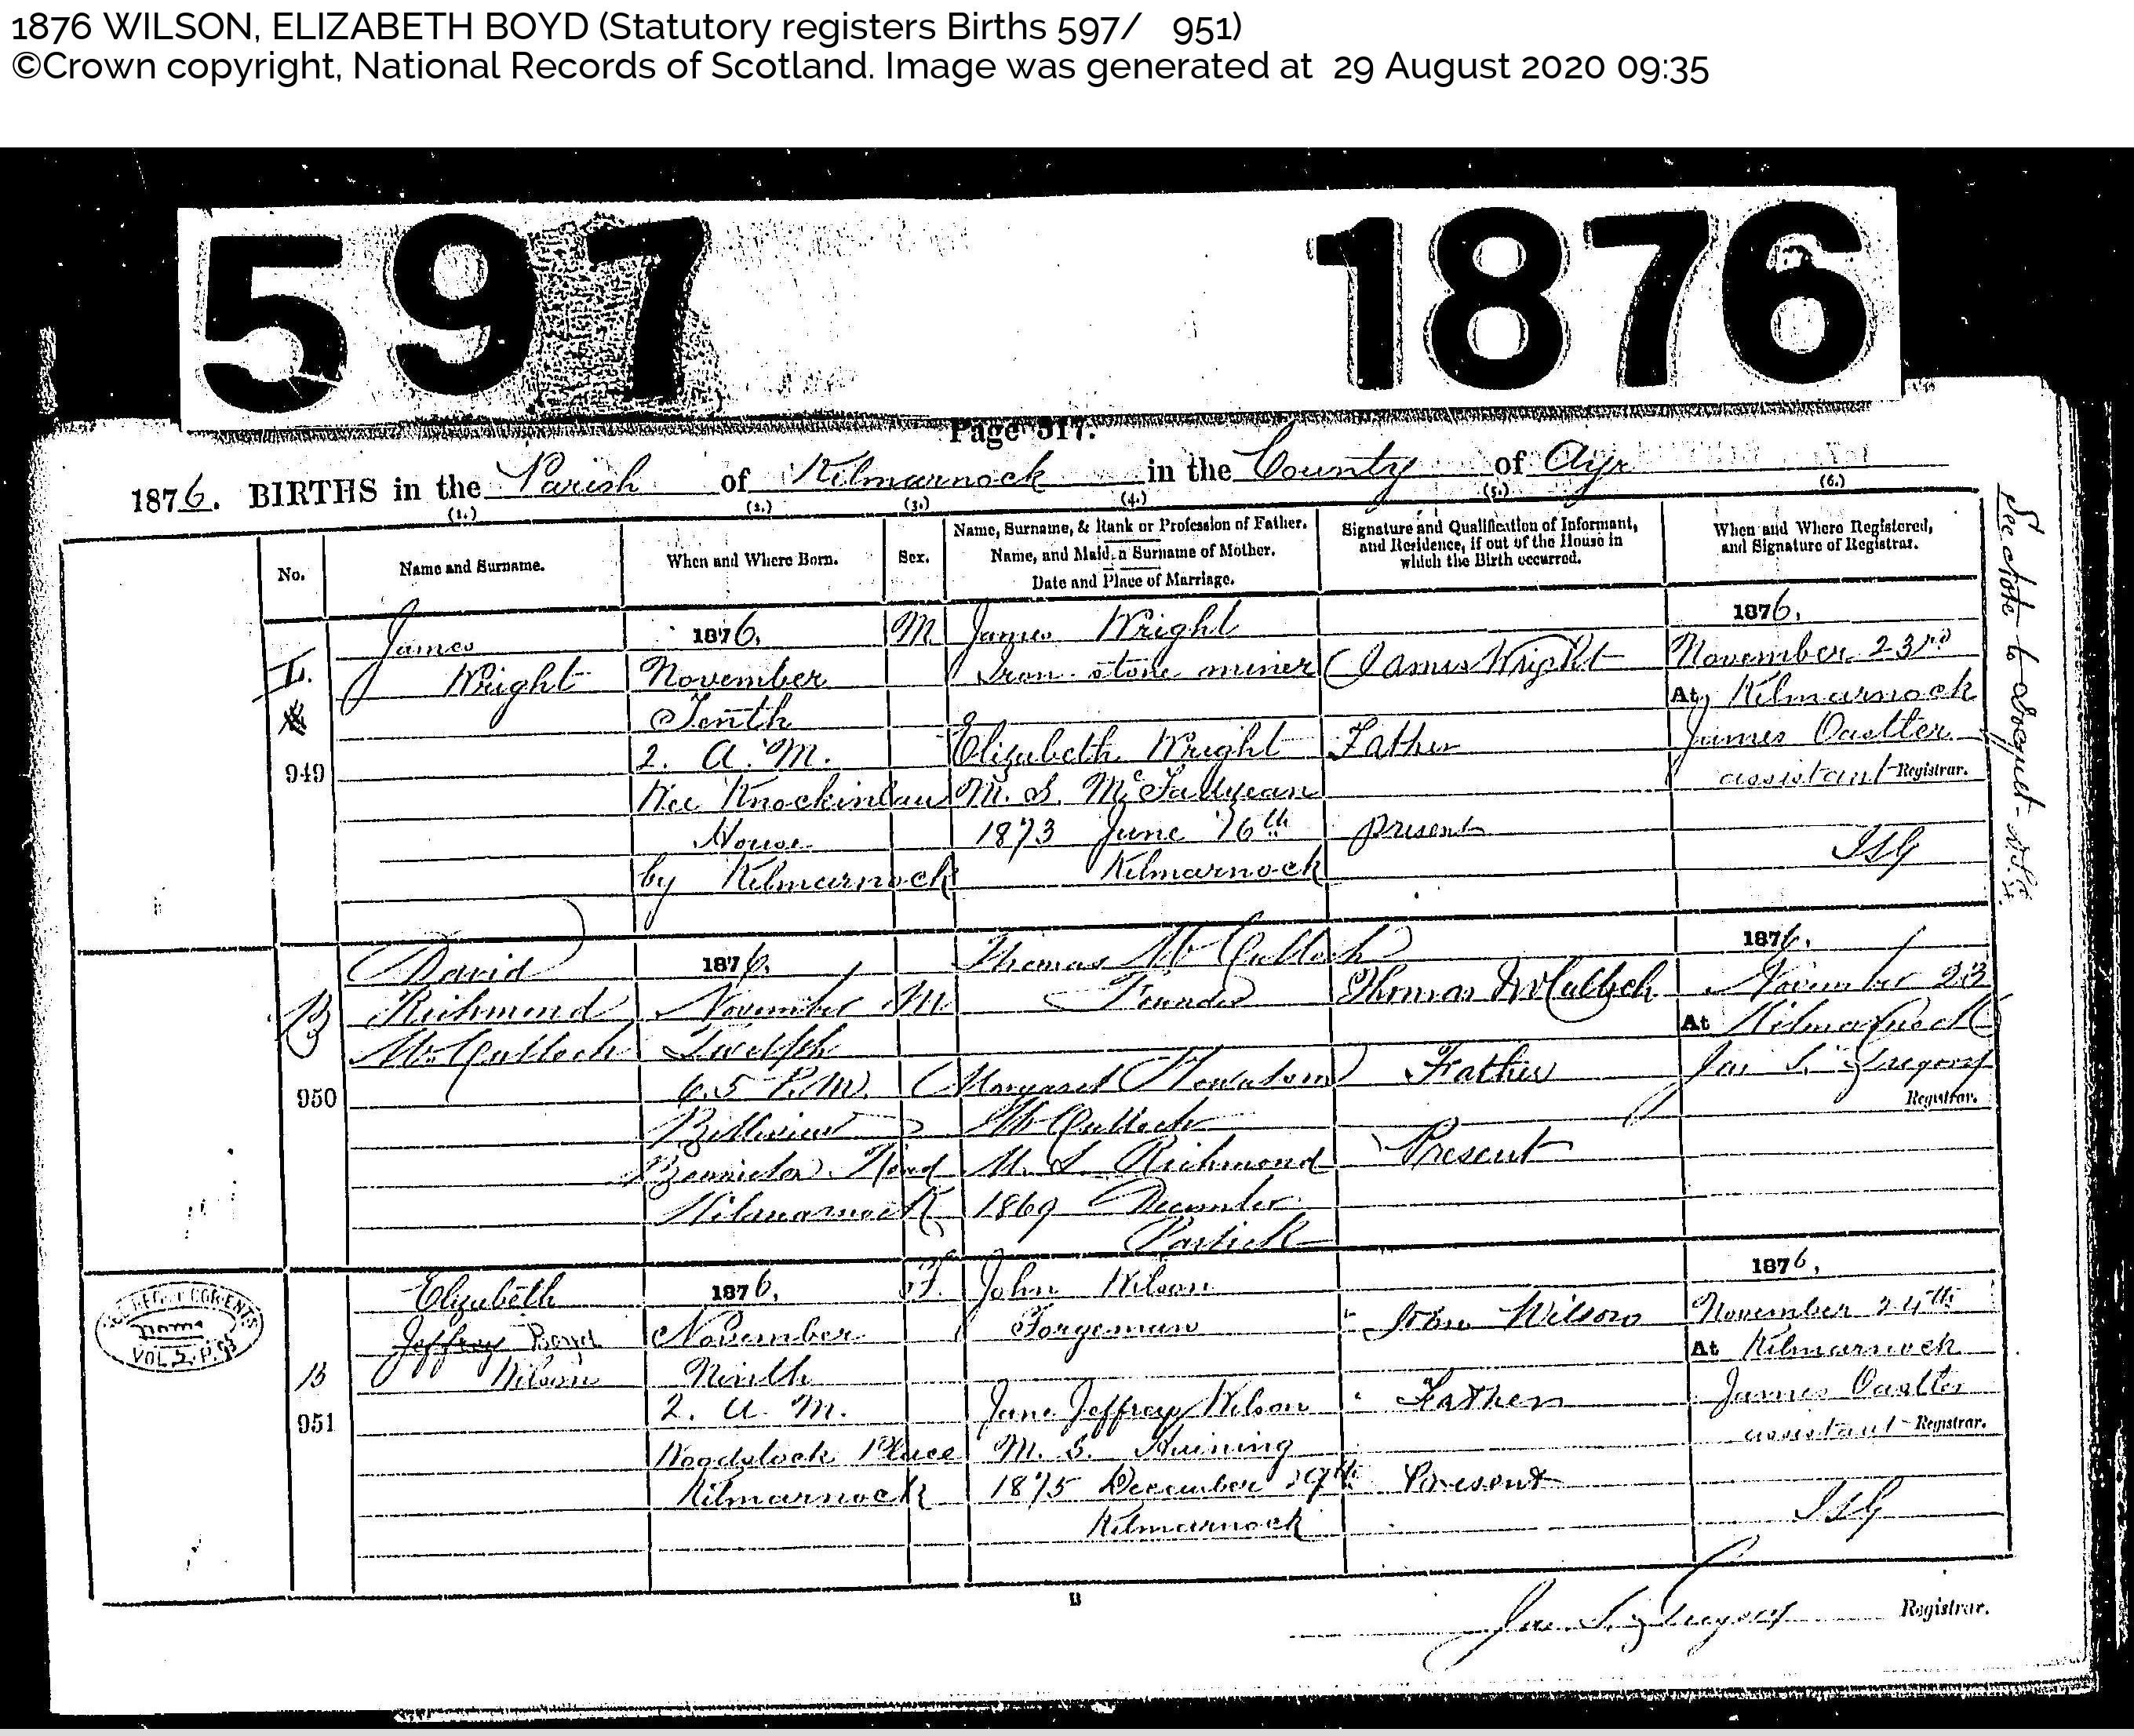 1876 WILSON, ELIZABETH BOYD (Statutory registers Births 597/ 951)
©Crown copyright, National Records of Scotland. Image was generated at 29 August 2020 09:35
597 1876
Page 317.
1876. BIRTHS in the Parish of Kilmarnock in the County of Ayr
(1.) (2.) (3.) (4.) (5.) (6.)
No.
Name and Surname.
When and Where Born.
Sex.
Name, Surname, & Rank or Profession of Father.
Name, and Maiden Surname of Mother.
Date and Place of Marriage.
Signature and Qualification of Informant,
and Residence, if out of the House in
which the Birth occurred.
When and Where Registered,
and Signature of Registrar.
949
James
Wright
1876,
November
Tenth
2. A. M.
Wee Knockinlaw
House
by Kilmarnock
M
James Wright
Iron-stone miner
Elizabeth Wright
M. S. McFadyean
1873 June 16th
Kilmarnock
James Wright
Father
present
1876,
November 23rd
At Kilmarnock
James Oastler
assistant Registrar.
JSG
See note to docquet
B
950
David
Richmond
McCulloch
1876,
November
Twelfth
6.5 P.M.
Bellview
Road
Kilmarnock
M
Thomas McCulloch
Founder
Margaret Howatson
McCulloch
M. S. Richmond
1869 December
Partick
Thomas McCulloch
Father
Present
1876,
November 23
At Kilmarnock
Jas S. Gregory
Registrar.
REG. OF COR. ENTS
name
VOL 5. P.
B
951
Elizabeth
Jeffrey Boyd
Wilson
1876,
November
Ninth
2. A. M.
Woodstock Place
Kilmarnock
F.
John Wilson
Forgeman
Jane Jeffrey Wilson
M. S.
1875 December 29th
Kilmarnock
John Wilson
Father
Present
1876,
November 24th
At Kilmarnock
James Oastler
assistant Registrar.
JSG
B
Jas. S. Gregory Registrar.